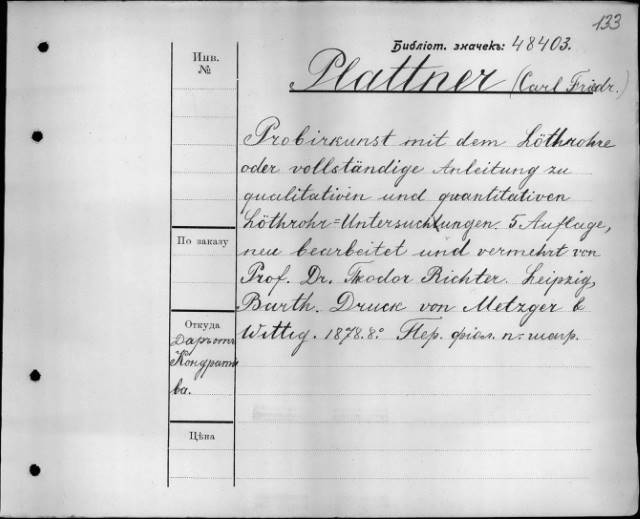 133
Библіот. значекъ: 48403.
Инв.
№
Plattner (Carl Friedr.)
Probirkunst mit dem Löthrohre
oder vollständige Anleitung zu
qualitativen und quantitativen
Löthrohr=Untersuchungen. 5. Auflage,
neu bearbeitet und vermehrt von
Prof. Dr. Theodor Richter. Leipzig,
Barth. Druck von Metzger &
Wittig. 1878. 8.° Пер. фіол. п. шагр.
По заказу
Откуда
Даръ
Кондратье
ва.
Цѣна